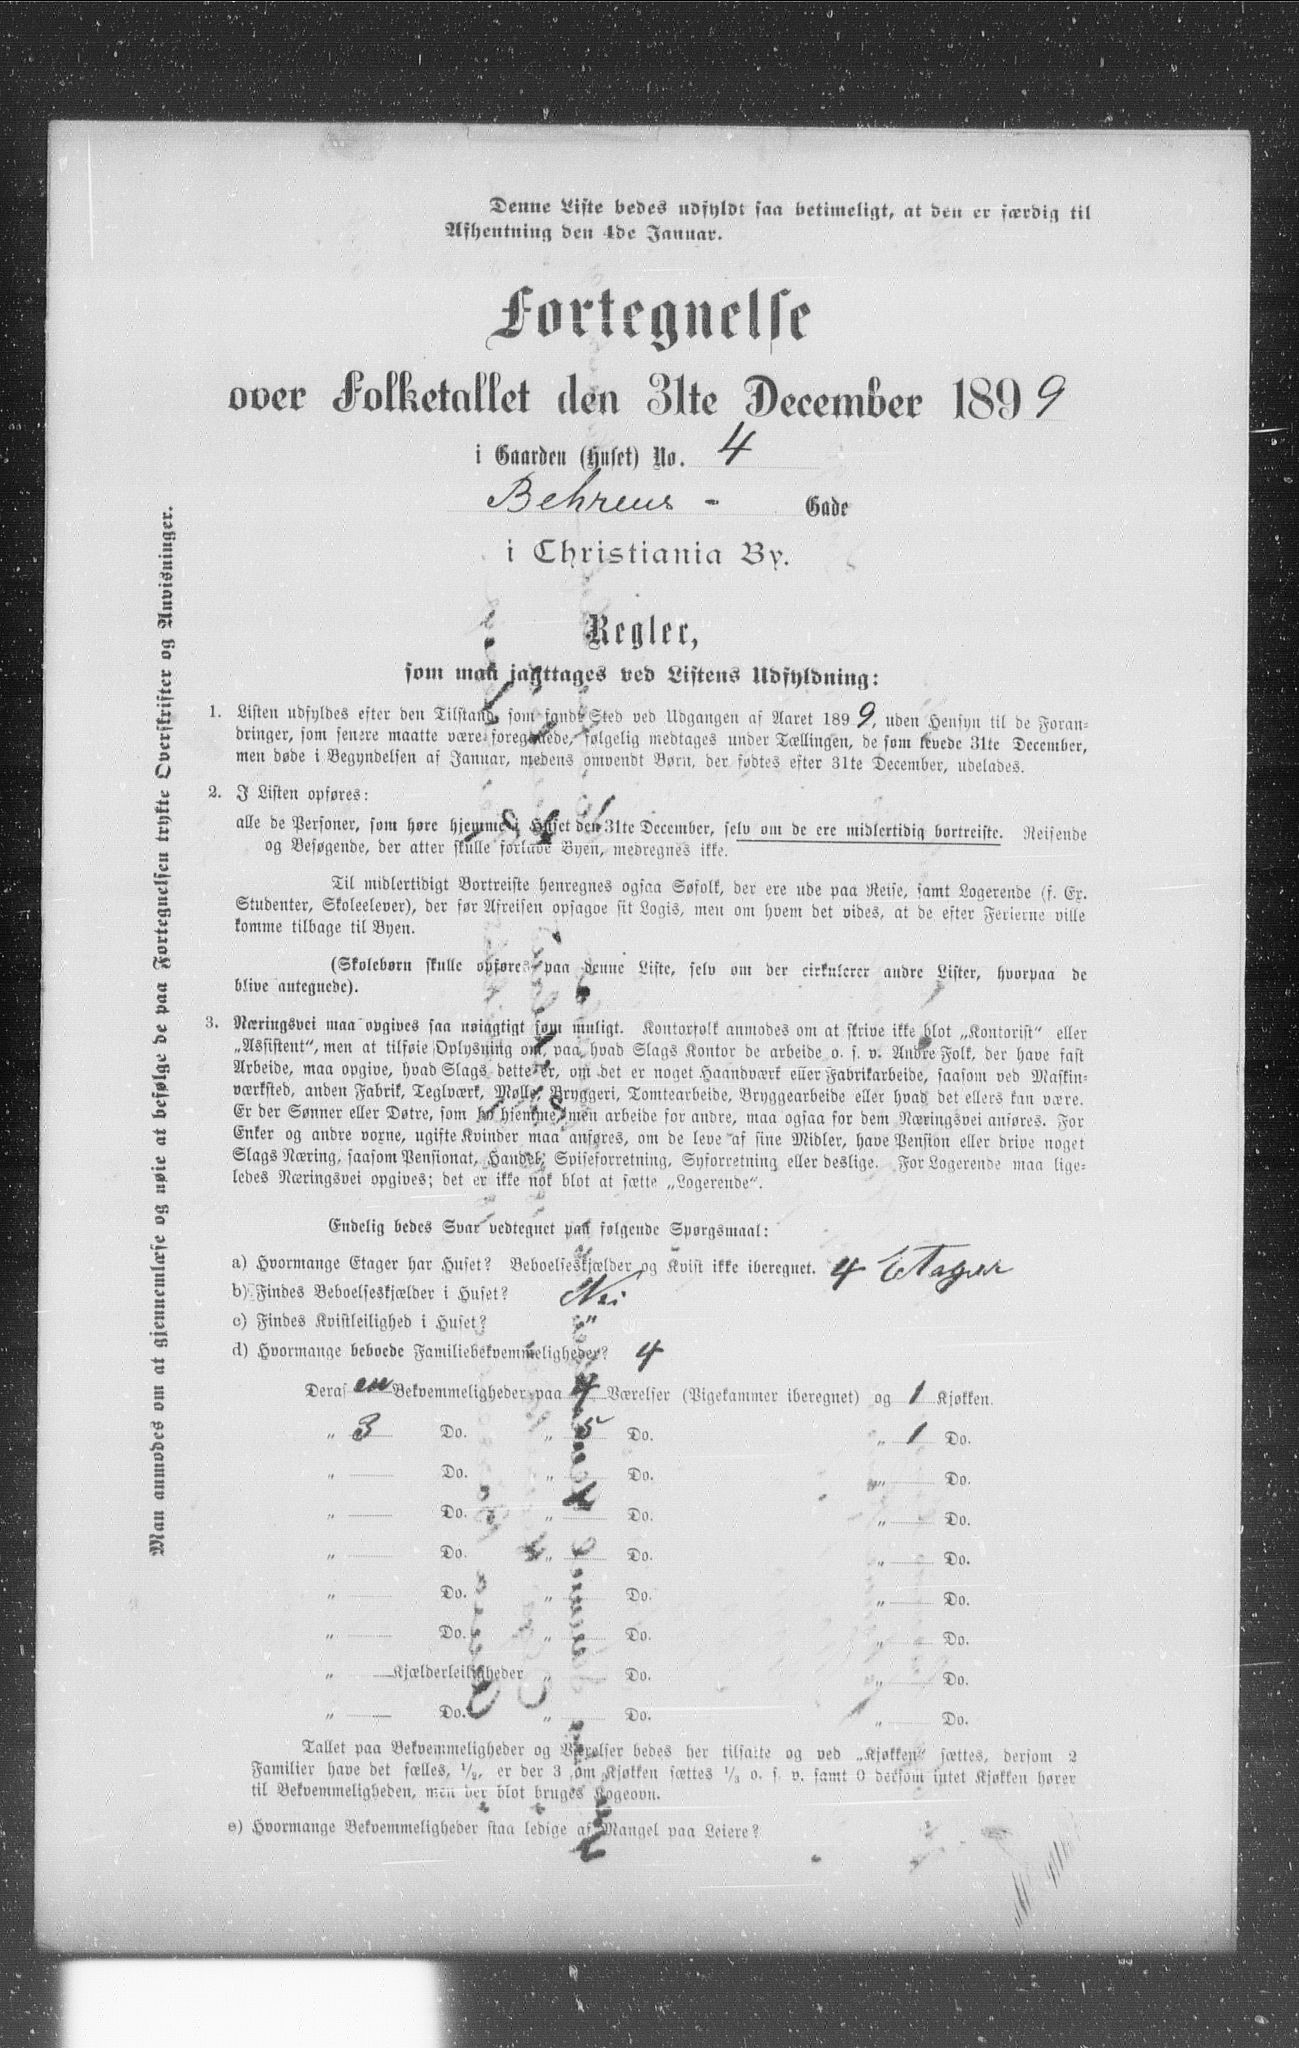 Denne Liste bedes udfyldt saa betimeligt, at den er færdig til
Afhentning den 4de Januar.
Fortegnelse
over Folketallet den 31te December 1899
i Gaarden (Huset) No. 4
Behrens - Gade
i Christiania By.
Regler,
som maa jagttages ved Listens Udfyldning:
1. Listen udfyldes efter den Tilstand, som fandt Sted ved Udgangen af Aaret 1899, uden Hensyn til de Foran-
dringer, som senere maatte være foregaaede, følgelig medtages under Tællingen, de som levede 31te December,
men døde i Begyndelsen af Januar, medens omvendt Børn, der fødtes efter 31te December, udelades.
2. I Listen opføres:
alle de Personer, som høre hjemme i Huset den 31te December, selv om de ere midlertidig bortreiste. Reisende
og Besøgende, der atter skulle forlade Byen, medregnes ikke.
Til midlertidigt Bortreiste henregnes ogsaa Søfolk, der ere ude paa Reise, samt Logerende (f. Ex.
Studenter, Skoleelever), der før Afreisen opsagde sit Logis, men om hvem det vides, at de efter Ferierne ville
komme tilbage til Byen.
(Skolebørn skulle opføres paa denne Liste, selv om der cirkulerer andre Lister, hvorpaa de
blive antegnede).
3. Næringsvei maa opgives saa nøiagtigt som muligt. Kontorfolk anmodes om at skrive ikke blot „Kontorist“ eller
„Assistent“, men at tilføie Oplysning om, paa hvad Slags Kontor de arbeide o. s. v. Andre Folk, der have fast
Arbeide, maa opgive, hvad Slags dette er, om det er noget Haandværk eller Fabrikarbeide, saasom ved Maskin-
værksted, anden Fabrik, Teglværk, Mølle, Bryggeri, Tomtearbeide, Bryggearbeide eller hvad det ellers kan være.
Er der Sønner eller Døtre, som bo hjemme, men arbeide for andre, maa ogsaa for dem Næringsvei anføres. For
Enker og andre voxne, ugifte Kvinder maa anføres, om de leve af sine Midler, have Pension eller drive noget
Slags Næring, saasom Pensionat, Handel, Spiseforretning, Syforretning eller deslige. For Logerende maa lige-
ledes Næringsvei opgives; det er ikke nok blot at sætte „Logerende“.
Endelig bedes Svar vedtegnet paa følgende Spørgsmaal:
a) Hvormange Etager har Huset? Beboelseskjælder og Kvist ikke iberegnet. 4 Etager
b) Findes Beboelseskjælder i Huset? Nei
c) Findes Kvistleilighed i Huset? "
d) Hvormange beboede Familiebekvemmeligheder? 4
Deraf en Bekvemmeligheder paa 4 Værelser (Pigekammer iberegnet) og 1 Kjøkken.
„ 3 Do. „ 5 Do. „ 1 Do.
„ Do. „ Do. „ Do.
„ Do. „ Do. „ Do.
„ Do. „ Do. „ Do.
„ Do. „ Do. „ Do.
„ Do. „ Do. „ Do.
„ Kjælderleiligheder „ Do. „ Do.
„ Do. „ Do. „ Do.
Tallet paa Bekvemmeligheder og Værelser bedes her tilsatte og ved „Kjøkken“ sættes, dersom 2
Familier have det fælles, 1/2, er der 3 om Kjøkken sættes 1/3 o. s. v. samt 0 dersom intet Kjøkken hører
til Bekvemmeligheden, men der blot bruges Kogeovn.
e) Hvormange Bekvemmeligheder staa ledige af Mangel paa Leiere?
Man anmodes om at gjennemlæse og nøie at besølge de paa Fortegnelsen trykte Overskrifter og Anvisninger.